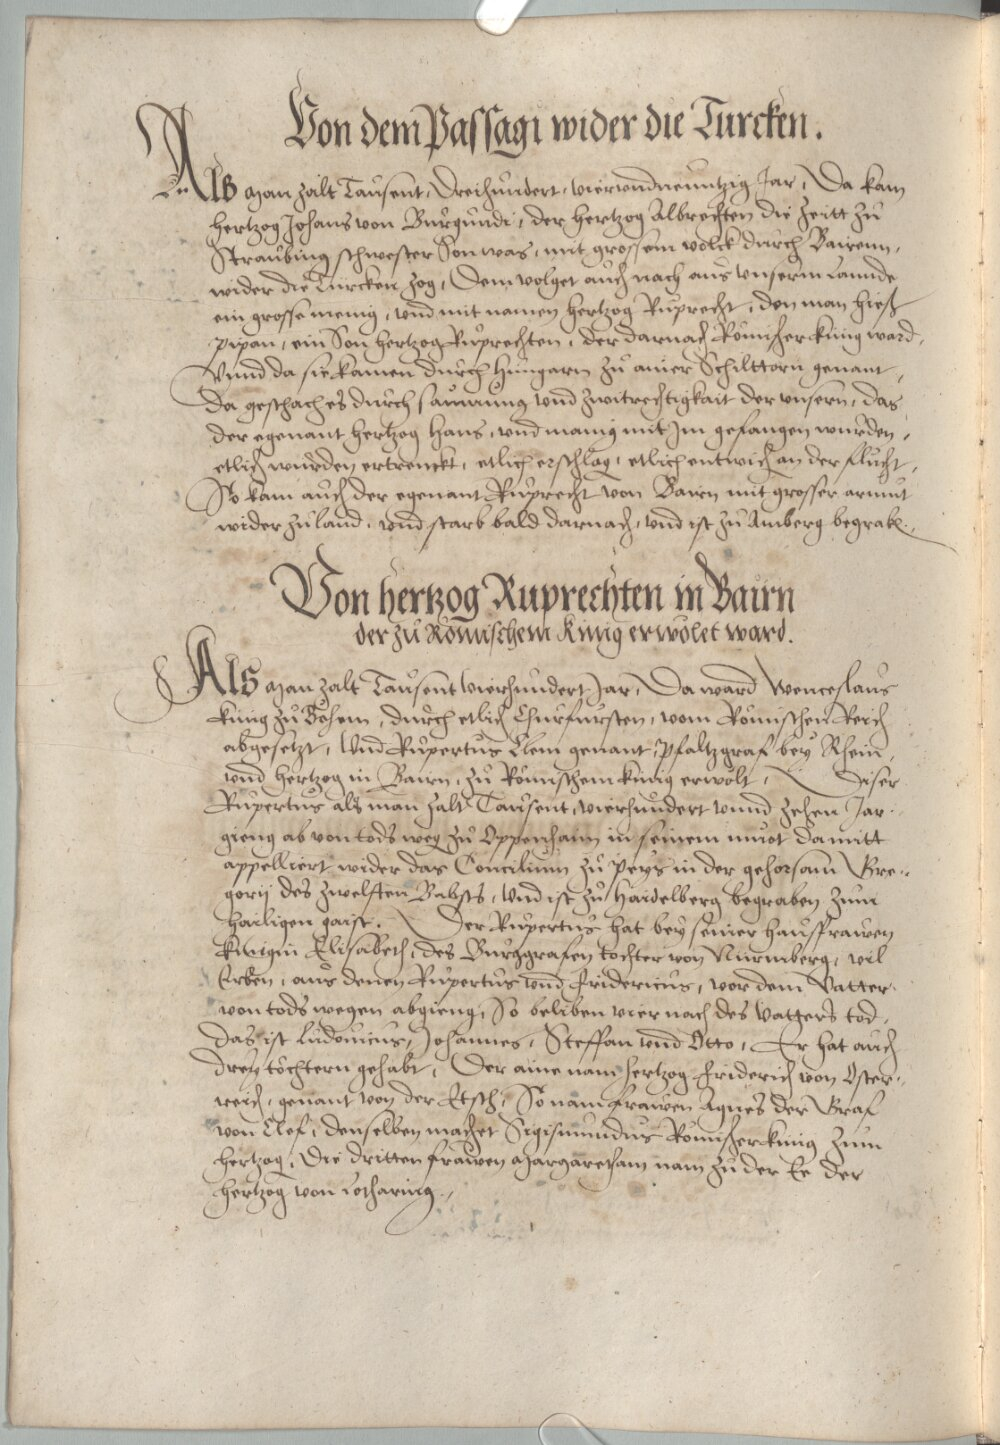 Von dem Passagi wider die Turcken.
Als man zalt Tausent, Dreihundert, vierundneuntzig Jar, Da kam
hertzog Johans von Burgundi, der hertzog Albrechten die Zeitt zu
Straubing schwester Son was, mit grossem volck durch Bairenn,
wider die Turcken zog, Dem volget auch nach aus unserm Lannde
ein grosse menig, und mit namen hertzog Ruprecht, den man hiess
Pipan, ein Son hertzog Ruprechten, der darnach Römischer künig ward.
Vnnd da sie kamen durch Hungarn zu ainer Schilttorn genant,
da geschach es durch saumung und zwitrechtigkait der unsern, das
der egenant hertzog Hans, und manig mit Im gefangen wurden,
etlich wurden ertrenckt, etlich erschlag, etlich entwich an der flucht,
So kam auch der egenant Ruprecht von Bairn mit grosser armut
wider zu land, und starb bald darnach, und ist zu Amberg begrab.
Von hertzog Ruprechten in Bairn
der zu Römischem Künig erwölet ward.
Als man zalt Tausent vierhundert Jar, Da ward Wenceslaus
künig zu Böhem, durch etlich Churfursten, vom Römischen Reich
abgesetzt, Und Rupertus Clem genant, Pfaltzgraf bey Rhein,
und hertzog in Bairn, zu Römischem künig erwölt, Diser
Rupertus als man zalt Tausent, vierhundert unnd zehen Jar,
gieng ab von tods weg zu Oppenhaim in seinem muot damitt
appelliert wider das Concilium zu Peys in der gehorsam Gre-
gorij des zwelfften Babsts, Und ist zu Haidelberg begraben zum
hailigen gaist. Der Rupertus hat bey seiner hausffrawen
künigin Elisabeth, des Burggrafen tochter von Nürmberg, vil
Erben, aus denen Rupertus und Fridericus, vor dem Vatter
von tods wegen abgieng, So beliben vier nach des Vatters tod,
Das ist Ludovicus, Johannes, Steffan und Otto, Er hat auch
drey töchtern gehabt, Der aine nam hertzog Friderich von Öster-
reich, genant von der Etsch, So nam frawen Agnes der Graf
von Clef, denselben machet Sigismundus Römischer künig zum
hertzog, Die dritten frawen Margaretham nam zu der Ee der
hertzog von Lotharing.